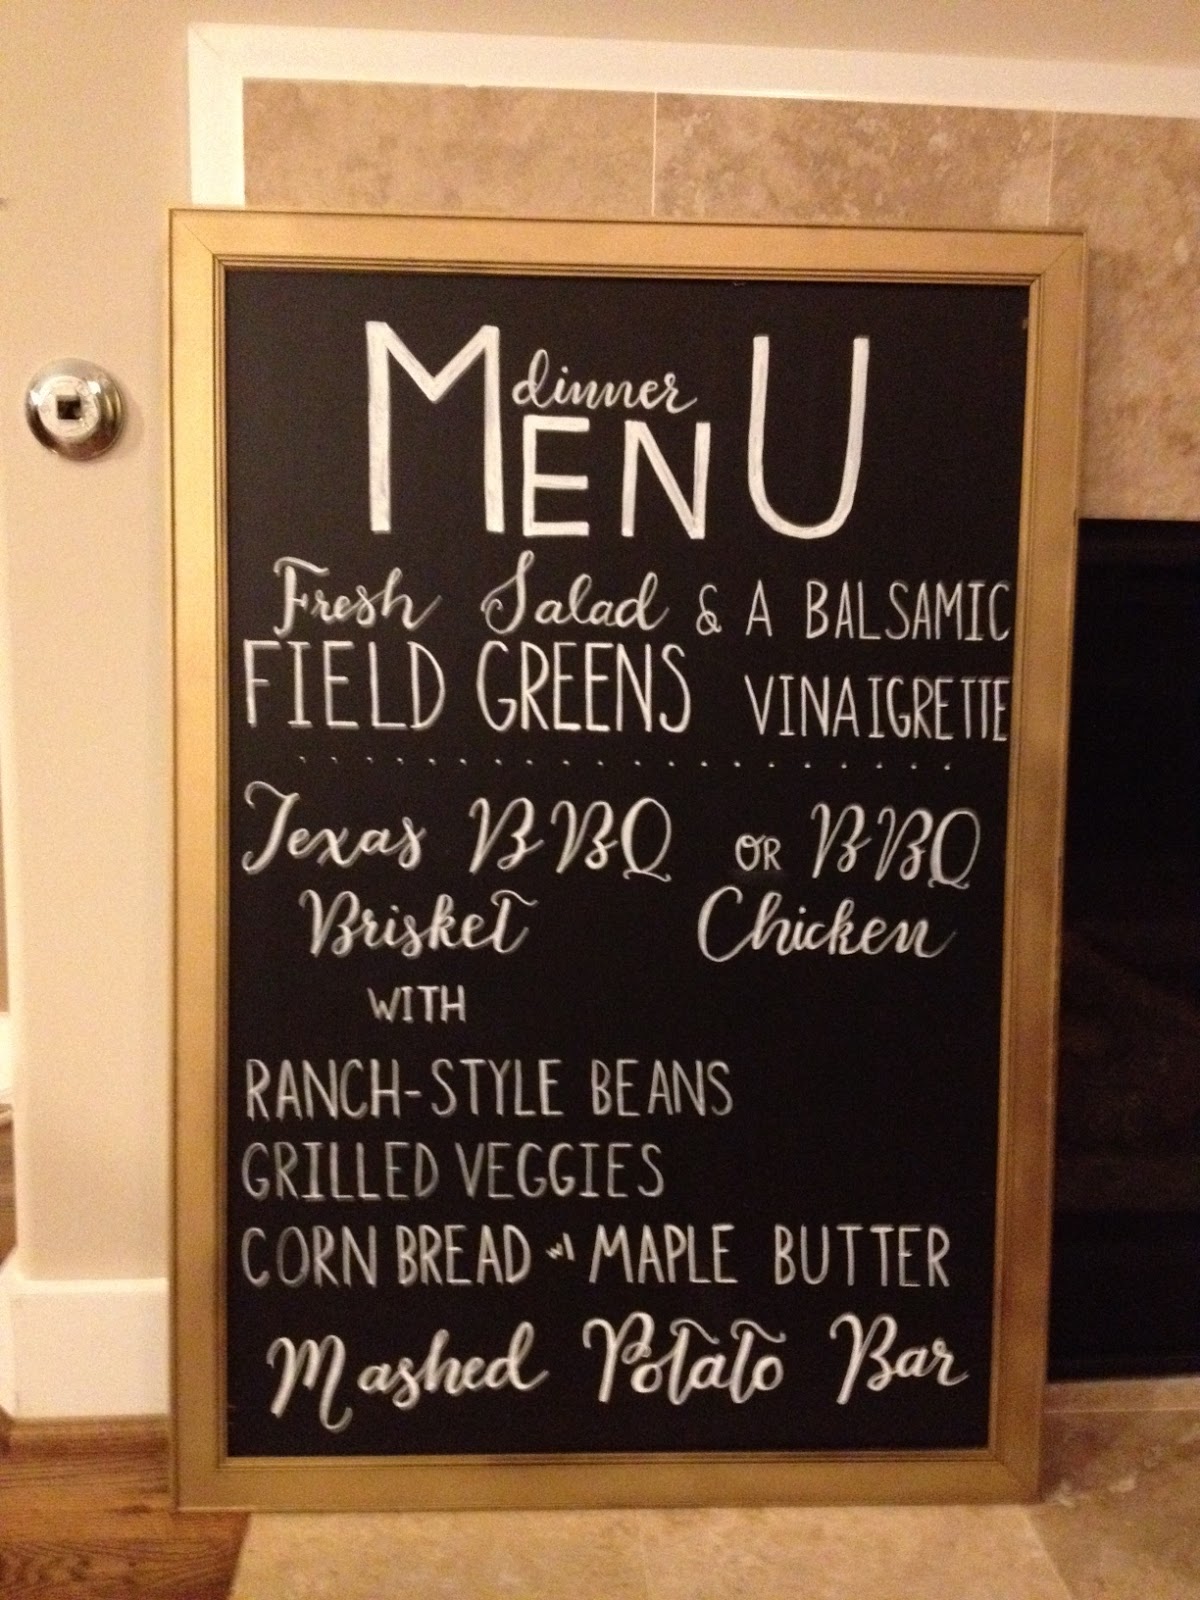 dinner
MENU
Fresh Salad & A BALSAMIC
FIELD GREENS VINAIGRETTE
Texas BBQ OR BBQ
Brisket Chicken
WITH
RANCH-STYLE BEANS
GRILLED VEGGIES
CORN BREAD W/ MAPLE BUTTER
Mashed Potato Bar